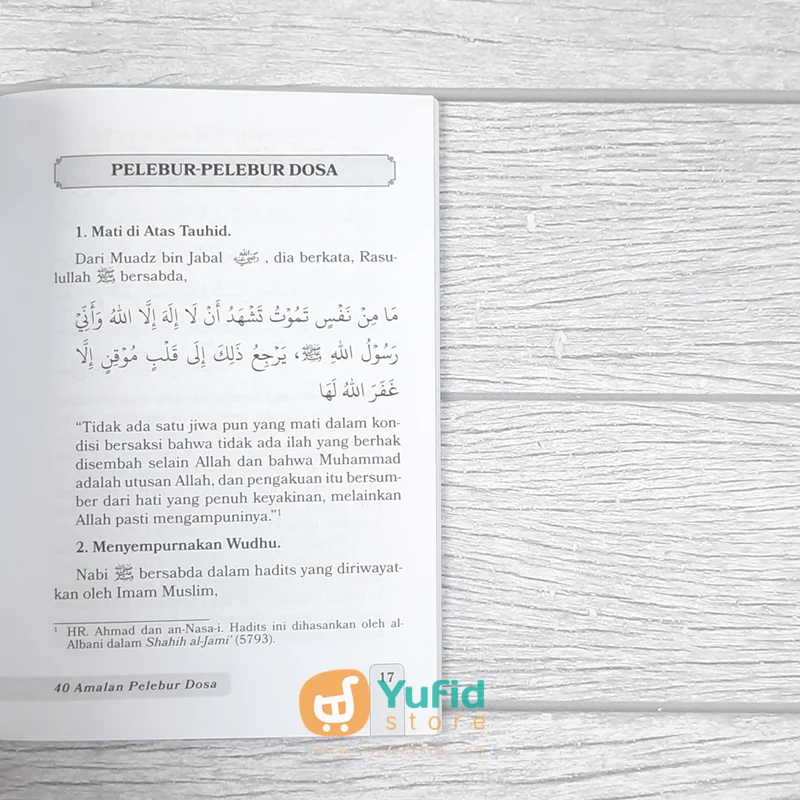 PELEBUR-PELEBUR DOSA
1. Mati di Atas Tauhid.
Dari Muadz bin Jabal رضي الله عنه, dia berkata, Rasu-
lullah ﷺ bersabda,
مَا مِنْ نَفْسٍ تَمُوْتُ تَشْهَدُ أَنْ لَا إِلَهَ إِلَّا اللهُ وَأَنِّيْ
رَسُوْلُ اللهِ ﷺ، يَرْجِعُ ذَلِكَ إِلَى قَلْبٍ مُوْقِنٍ إِلَّا
غَفَرَ اللهُ لَهَا
“Tidak ada satu jiwa pun yang mati dalam kon-
disi bersaksi bahwa tidak ada ilah yang berhak
disembah selain Allah dan bahwa Muhammad
adalah utusan Allah, dan pengakuan itu bersum-
ber dari hati yang penuh keyakinan, melainkan
Allah pasti mengampuninya.”¹
2. Menyempurnakan Wudhu.
Nabi ﷺ bersabda dalam hadits yang diriwayat-
kan oleh Imam Muslim,
¹ HR. Ahmad dan an-Nasa-i. Hadits ini dihasankan oleh al-
Albani dalam Shahih al-Jami’ (5793).
40 Amalan Pelebur Dosa
17
Yufid
store